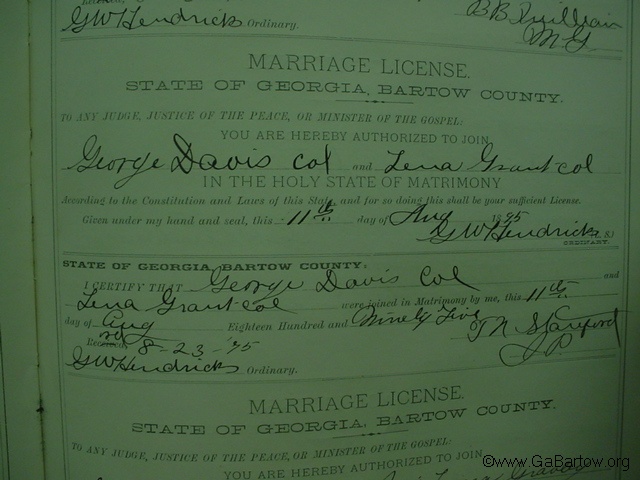 G W Hendricks Ordinary.
B B Quillian
M G
MARRIAGE LICENSE.
STATE OF GEORGIA, BARTOW COUNTY.
TO ANY JUDGE, JUSTICE OF THE PEACE, OR MINISTER OF THE GOSPEL:
YOU ARE HEREBY AUTHORIZED TO JOIN
George Davis col and Lena Grant-col
IN THE HOLY STATE OF MATRIMONY
According to the Constitution and Laws of this State, and for so doing this shall be your sufficient License.
Given under my hand and seal, this 11th day of Aug 1895
G W Hendricks (L. S.)
ORDINARY.
STATE OF GEORGIA, BARTOW COUNTY:
I CERTIFY THAT George Davis Col and
Lena Grant-col were joined in Matrimony by me, this 11th
day of Aug Eighteen Hundred and Ninety Five
T N
J P
8-23-'95
G W Hendricks Ordinary.
MARRIAGE LICENSE.
STATE OF GEORGIA, BARTOW COUNTY.
TO ANY JUDGE, JUSTICE OF THE PEACE, OR MINISTER OF THE GOSPEL:
YOU ARE HEREBY AUTHORIZED TO JOIN
©www.GaBartow.org